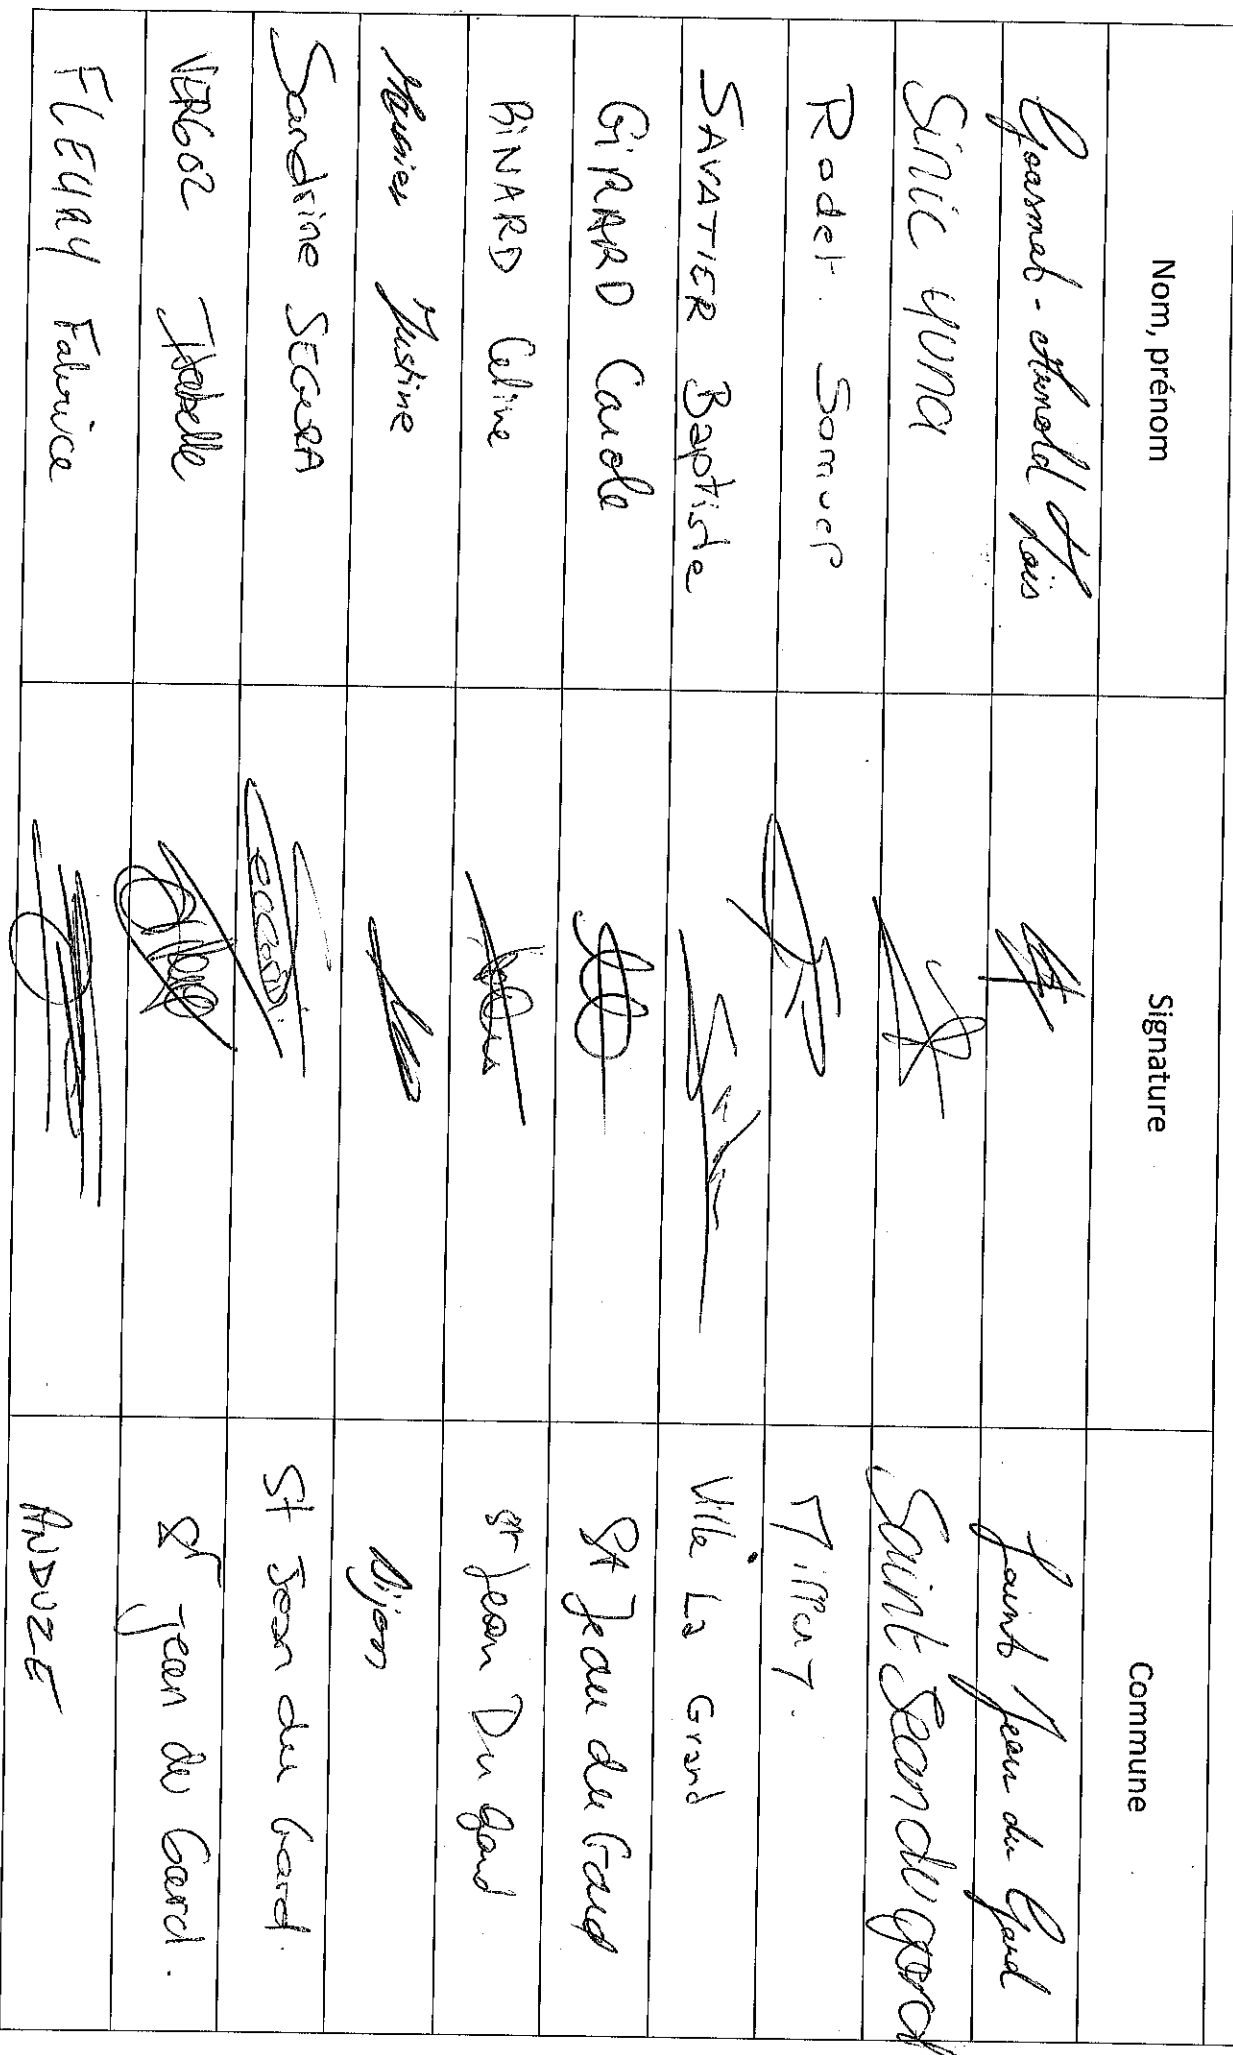 Nom, prénom Signature Commune
Goasmat - Arnold Loïs Saint Jean du Gard
Sinic Yuna Saint Jean du gard
Rodet. Samuel
SAVATIER Baptiste Ville La Grand
GIRARD Carole St Jean du Gard
BINARD Celine St Jean Du Gard
Justine Dijon
Sandrine SEGURA St Jean du Gard.
VERGOZ Isabelle St Jean du Gard.
FLEURY Fabrice ANDUZE